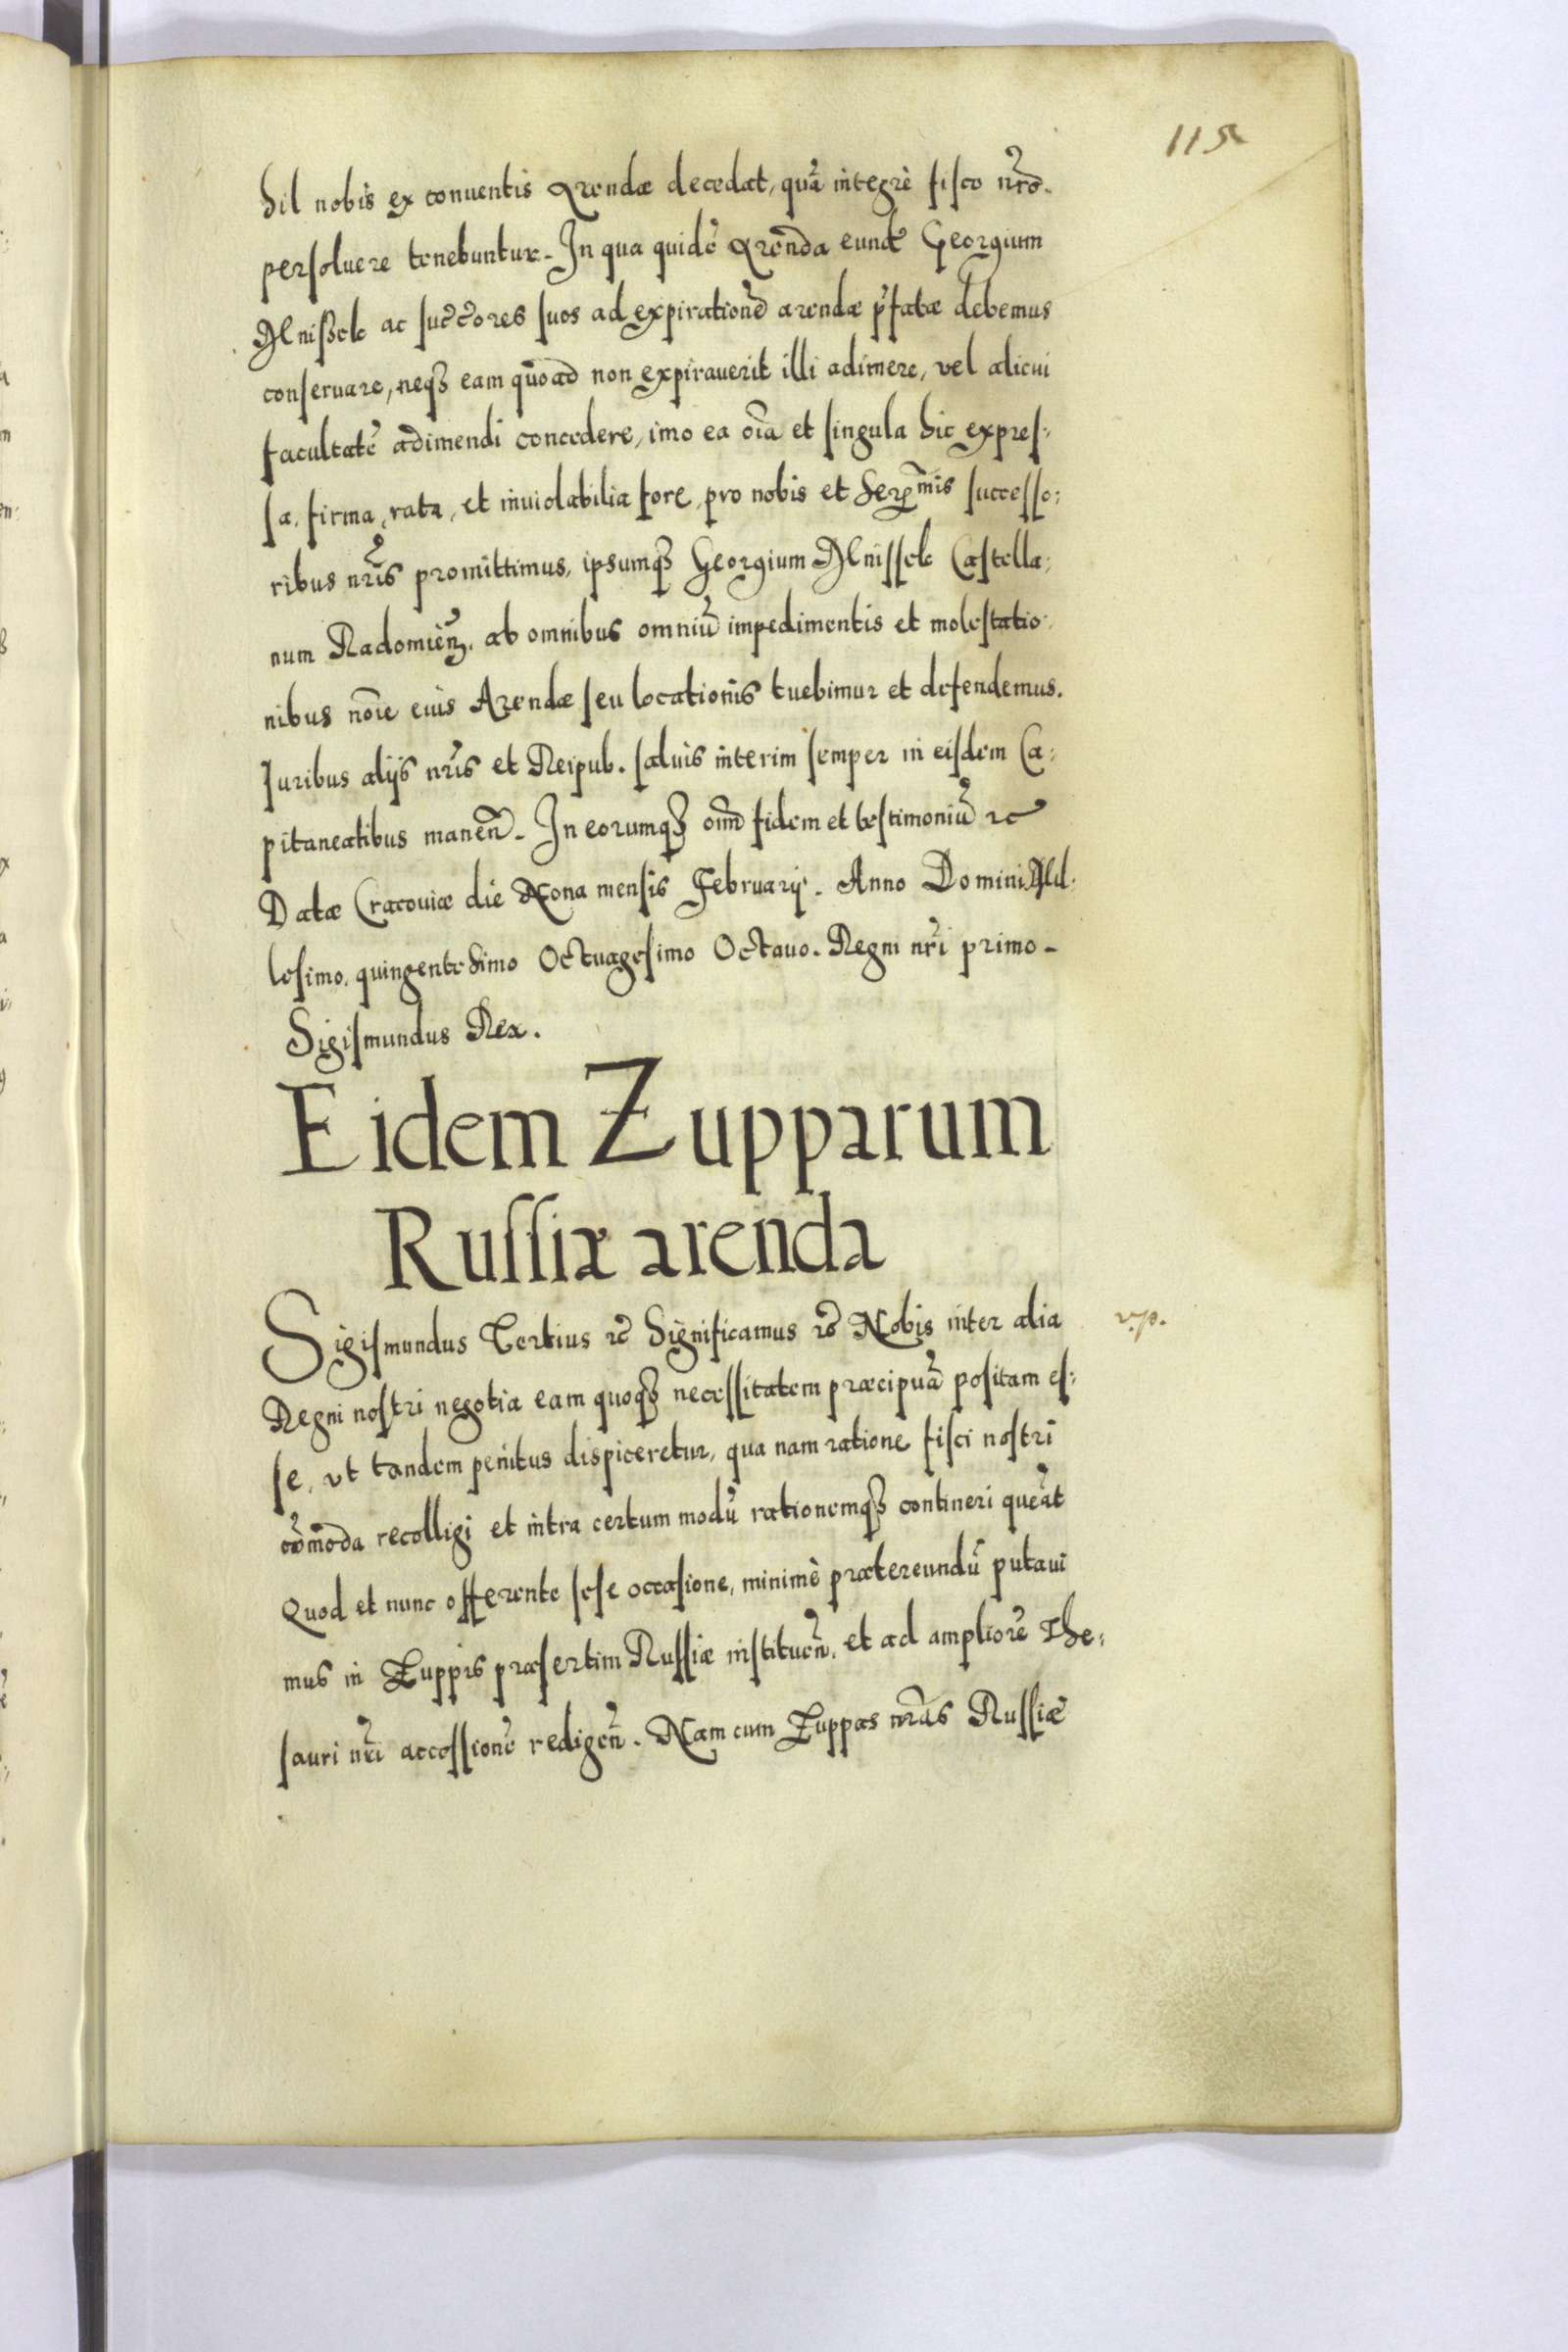 115
hil nobis ex conuentis Arendæ decedat, quā integrè fisco nr̃o.
persoluere tenebuntur. In qua quidē Arenda eund̃ Georgium
Mnißek ac suc̃c̃ores suos ad expirationē arendæ p̃fatæ debemus
conseruare, neqȝ eam quoad non expirauerit illi adimere, vel alicui
facultatē adimendi concedere, imo ea oı̃a et singula hic expres:
sa, firma, rata, et inuiolabilia fore, pro nobis et Ser̃mis successo:
ribus nr̃is promittimus, ipsumqȝ Georgium Mnissek Castella:
num Radomieñ. ab omnibus omniū impedimentis et molestatio:
nibus noı̃e eius Arendæ seu locationis tuebimur et defendemus.
Iuribus alijs nr̃is et Reipub. saluis interim semper in eisdem Ca:
pitaneatibus maneñ. In eorumqȝ om̃ fidem et testimoniū ꝛc
Datæ Cracouiæ die Nona mensis Februarij. Anno Domini Mil:
lesimo, quingentesimo Octuagesimo Octauo. Regni nr̃i primo.
Sigismundus Rex.
Eidem Zupparum
Russiæ arenda
Sigismundus Tertius ꝛc Significamus ꝛc Nobis inter alia
Regni nostri negotia eam quoqȝ necessitatem præcipuā positam es:
se, vt tandem penitus dispiceretur, qua nam ratione fisci nostri
cōmoda recolligi et intra certum modū rationemqȝ contineri queāt
Quod et nunc offerente sese occasione, minimè prætereundū putaui
mus in Zuppis præsertim Russiæ instituēn. et ad ampliorē The:
sauri nr̃i accessionē redigēn. Nam cum Zuppas nr̃as Russiæ